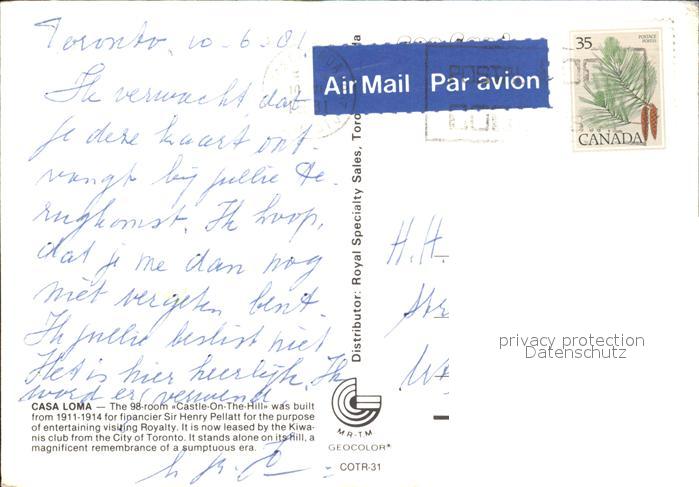 Toronto, 10-6-81
Ik verwacht dat
je deze kaart ont-
vangt bij jullie te-
rugkomst. Ik hoop,
dat je me dan nog
niet vergeten bent.
Ik jullie beslist niet
Het is hier heerlijk. Ik
word erg verwend.
CASA LOMA — The 98-room «Castle-On-The-Hill» was built
from 1911-1914 for financier Sir Henry Pellatt for the purpose
of entertaining visiting Royalty. It is now leased by the Kiwa-
nis club from the City of Toronto. It stands alone on its hill, a
magnificent remembrance of a sumptuous era.
Distributor: Royal Specialty Sales, Toro da
MR-TM
GEOCOLOR®
COTR-31
Air Mail Par avion
35
POSTAGE
POSTES
CANADA
H.H.
Str
privacy protection
Datenschutz